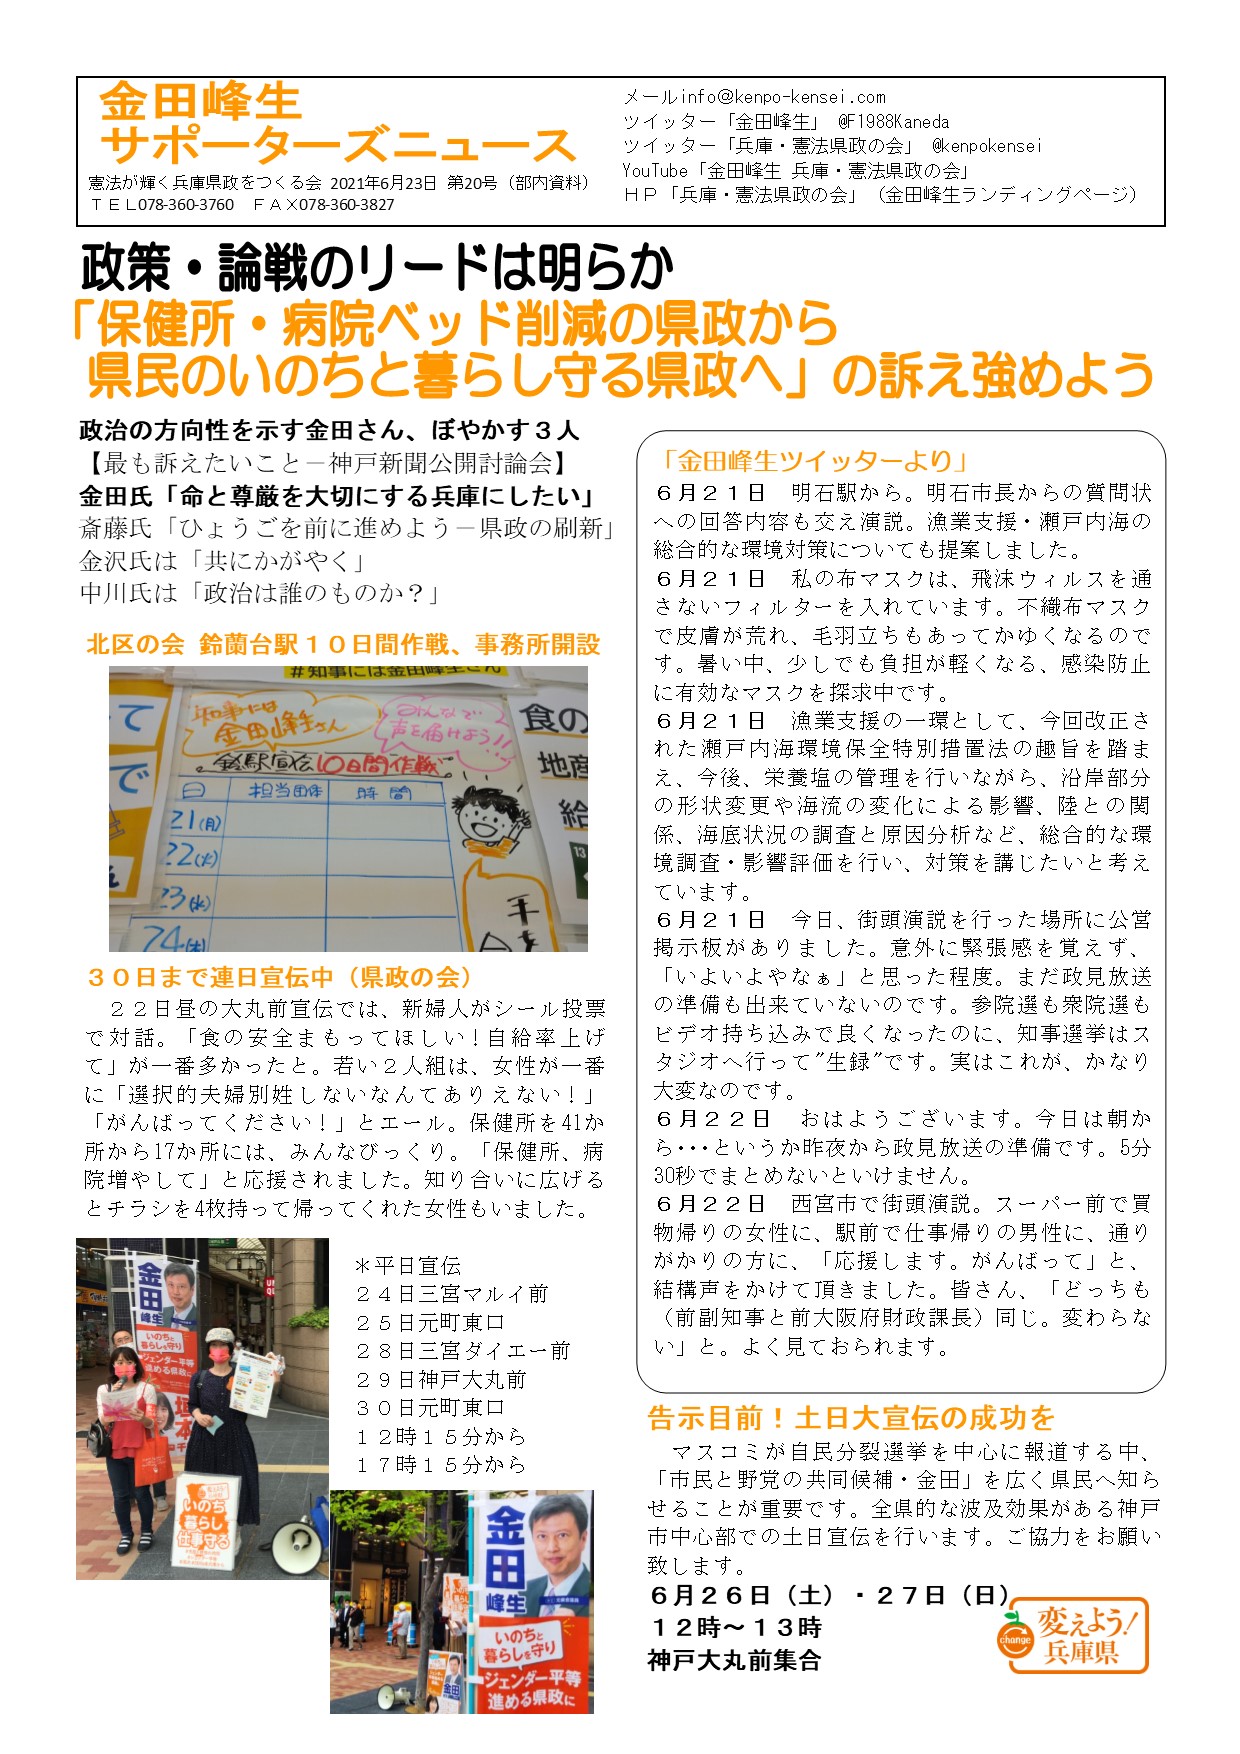 金田峰生
サポーターズニュース
憲法が輝く兵庫県政をつくる会 2021年6月23日 第20号（部内資料）
ＴＥＬ078-360-3760　ＦＡＸ078-360-3827
メールinfo@kenpo-kensei.com
ツイッター「金田峰生」 @F1988Kaneda
ツイッター「兵庫・憲法県政の会」 @kenpokensei
YouTube「金田峰生 兵庫・憲法県政の会」
ＨＰ「兵庫・憲法県政の会」（金田峰生ランディングページ）
政策・論戦のリードは明らか
「保健所・病院ベッド削減の県政から
県民のいのちと暮らし守る県政へ」の訴え強めよう
政治の方向性を示す金田さん、ぼやかす３人
【最も訴えたいこと－神戸新聞公開討論会】
金田氏「命と尊厳を大切にする兵庫にしたい」
斎藤氏「ひょうごを前に進めよう－県政の刷新」
金沢氏は「共にかがやく」
中川氏は「政治は誰のものか？」
北区の会 鈴蘭台駅１０日間作戦、事務所開設
#知事には金田峰生さん
知事には
金田峰生さん
みんなで
声を届けよう!!
鈴駅宣伝10日間作戦
日 担当団体 時間
21(月)
22(火)
23(水)
24(木)
て
で
食の
地産
給
13
３０日まで連日宣伝中（県政の会）
２２日昼の大丸前宣伝では、新婦人がシール投票
で対話。「食の安全まもってほしい！自給率上げ
て」が一番多かったと。若い２人組は、女性が一番
に「選択的夫婦別姓しないなんてありえない！」
「がんばってください！」とエール。保健所を41か
所から17か所には、みんなびっくり。「保健所、病
院増やして」と応援されました。知り合いに広げる
とチラシを4枚持って帰ってくれた女性もいました。
金田
峰生
いのちと
暮らしを守り
ジェンダー平等
進める県政に
いのち
暮らし
仕事守る
＊平日宣伝
２４日三宮マルイ前
２５日元町東口
２８日三宮ダイエー前
２９日神戸大丸前
３０日元町東口
１２時１５分から
１７時１５分から
金田
峰生
いのちと
暮らしを守り
ジェンダー平等
進める県政に
金田
「金田峰生ツイッターより」
６月２１日　明石駅から。明石市長からの質問状
への回答内容も交え演説。漁業支援・瀬戸内海の
総合的な環境対策についても提案しました。
６月２１日　私の布マスクは、飛沫ウィルスを通
さないフィルターを入れています。不織布マスク
で皮膚が荒れ、毛羽立ちもあってかゆくなるので
す。暑い中、少しでも負担が軽くなる、感染防止
に有効なマスクを探求中です。
６月２１日　漁業支援の一環として、今回改正さ
れた瀬戸内海環境保全特別措置法の趣旨を踏ま
え、今後、栄養塩の管理を行いながら、沿岸部分
の形状変更や海流の変化による影響、陸との関
係、海底状況の調査と原因分析など、総合的な環
境調査・影響評価を行い、対策を講じたいと考え
ています。
６月２１日　今日、街頭演説を行った場所に公営
掲示板がありました。意外に緊張感を覚えず、
「いよいよやなぁ」と思った程度。まだ政見放送
の準備も出来ていないのです。参院選も衆院選も
ビデオ持ち込みで良くなったのに、知事選挙はス
タジオへ行って”生録”です。実はこれが、かなり
大変なのです。
６月２２日　おはようございます。今日は朝か
ら･･･というか昨夜から政見放送の準備です。5分
30秒でまとめないといけません。
６月２２日　西宮市で街頭演説。スーパー前で買
物帰りの女性に、駅前で仕事帰りの男性に、通り
がかりの方に、「応援します。がんばって」と、
結構声をかけて頂きました。皆さん、「どっちも
（前副知事と前大阪府財政課長）同じ。変わらな
い」と。よく見ておられます。
告示目前！土日大宣伝の成功を
マスコミが自民分裂選挙を中心に報道する中、
「市民と野党の共同候補・金田」を広く県民へ知ら
せることが重要です。全県的な波及効果がある神戸
市中心部での土日宣伝を行います。ご協力をお願い
致します。
６月２６日（土）・２７日（日）
１２時～１３時
神戸大丸前集合
change
変えよう！
兵庫県